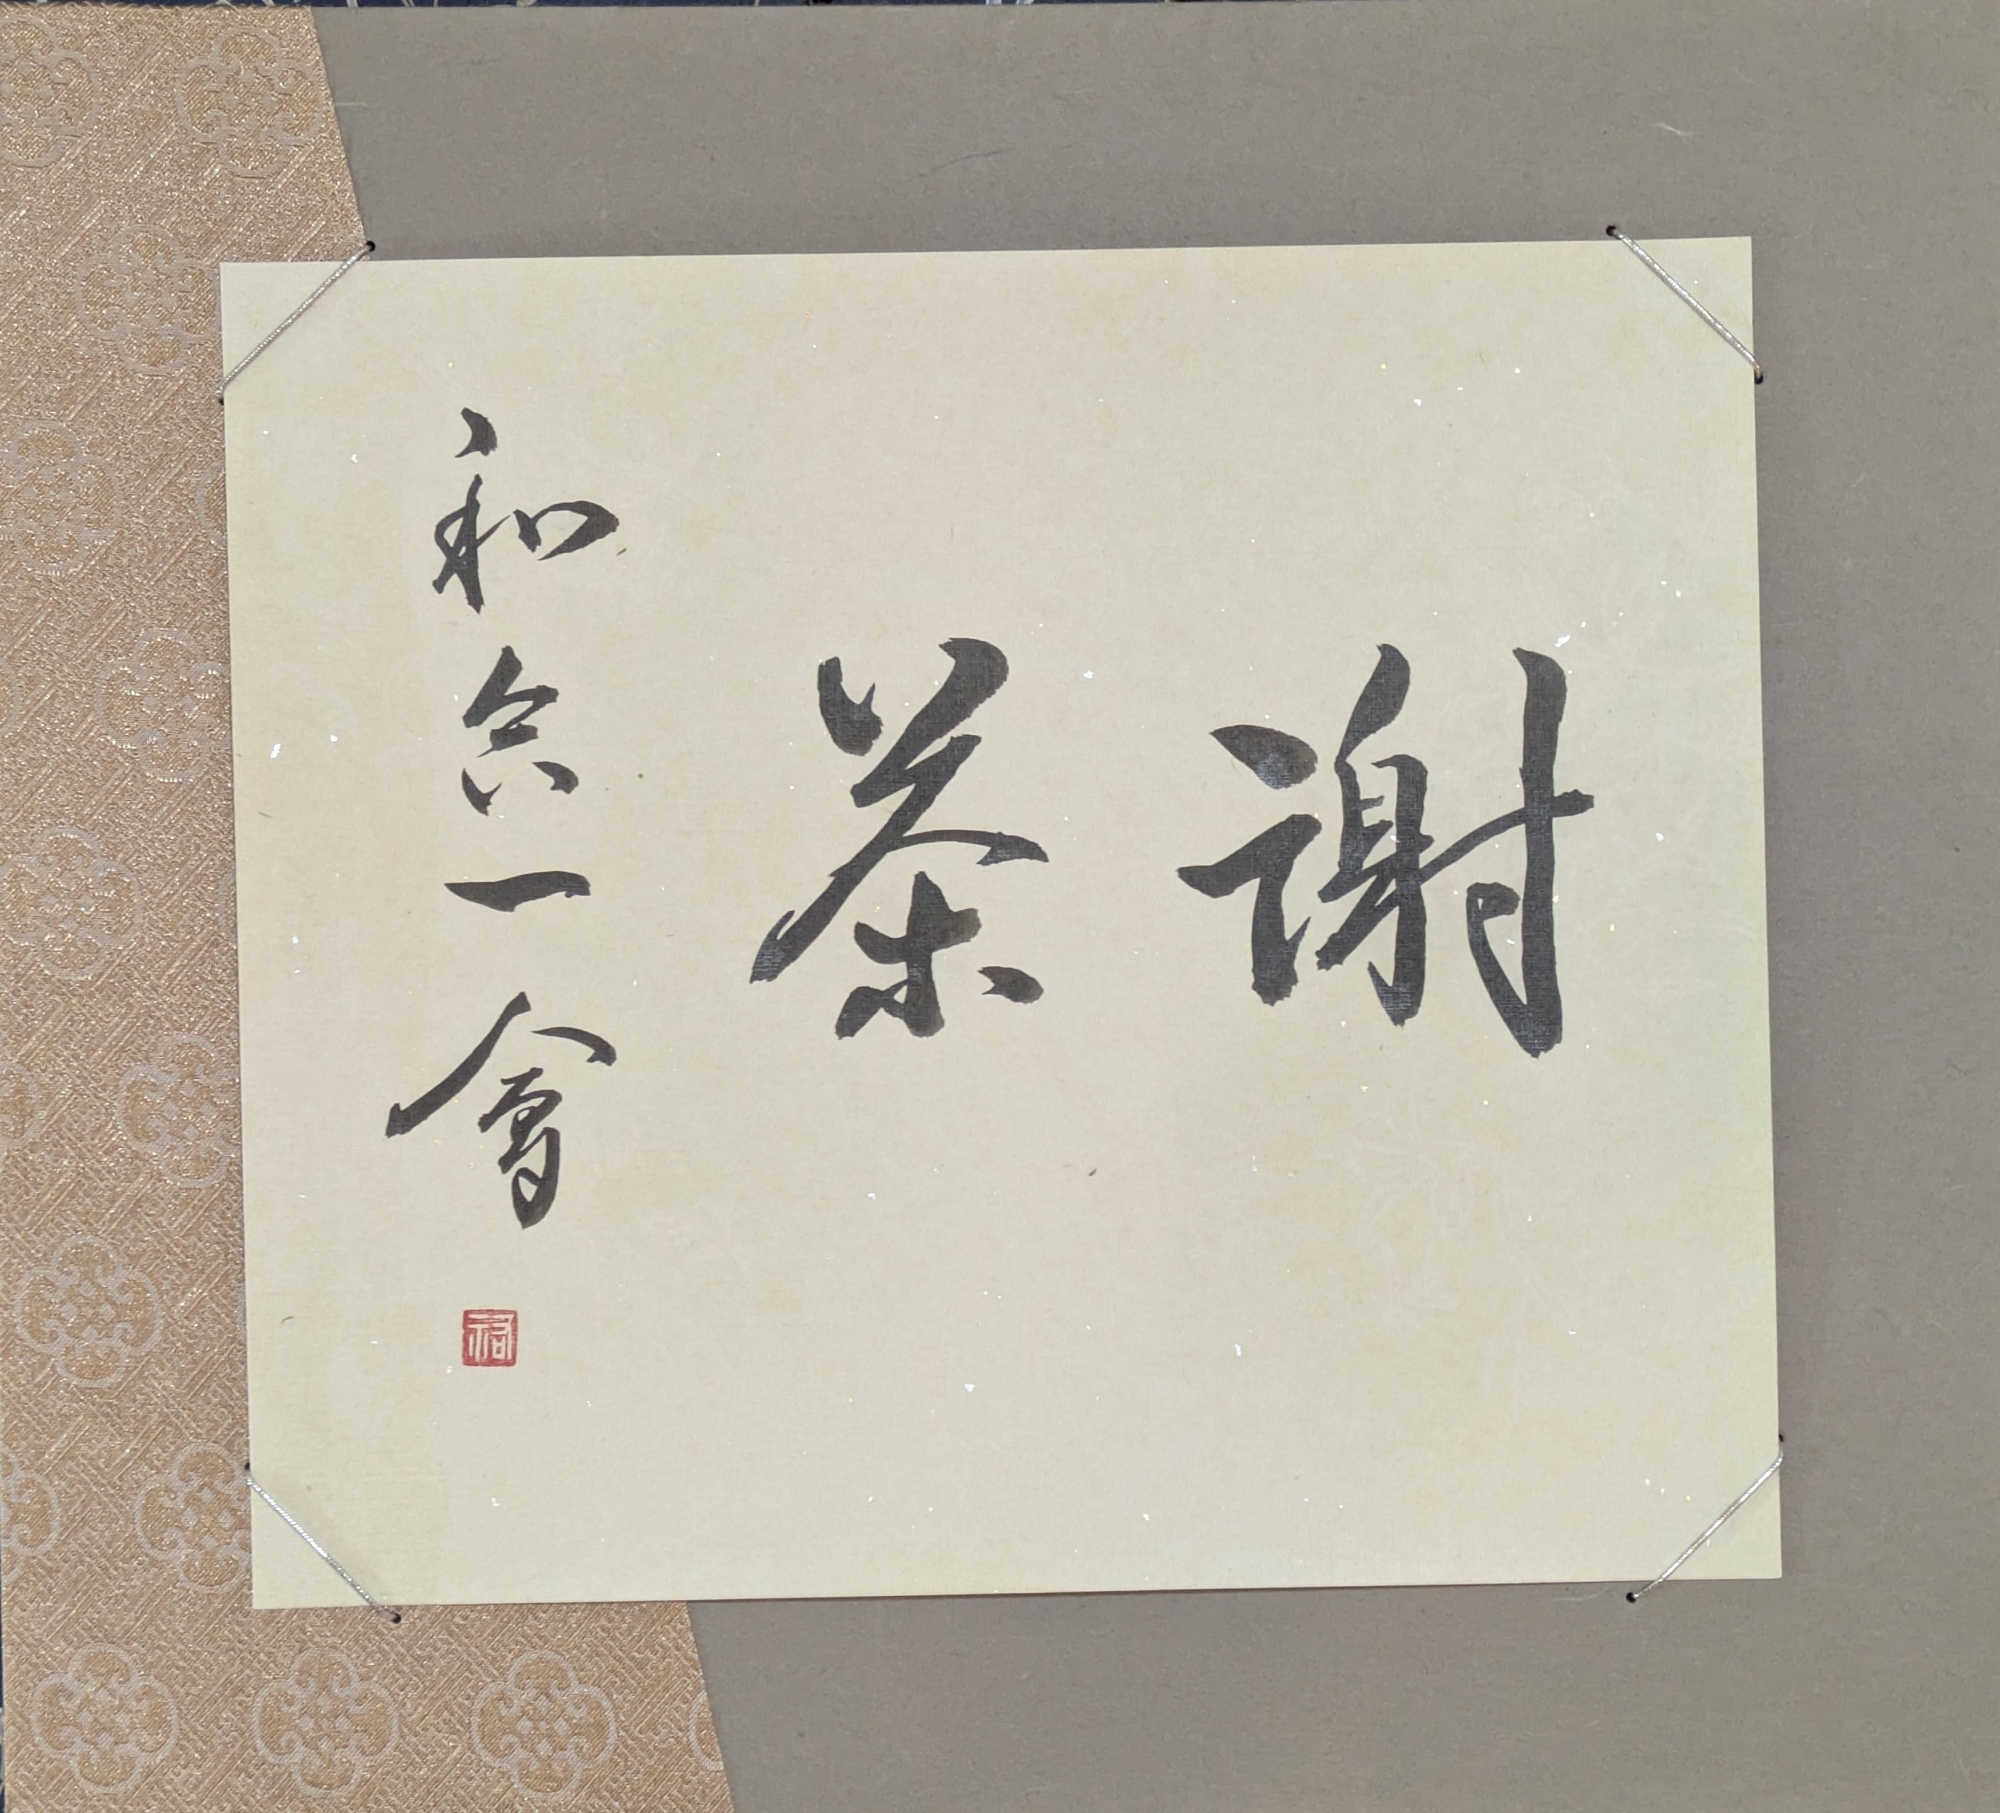 謝茶
和合一會